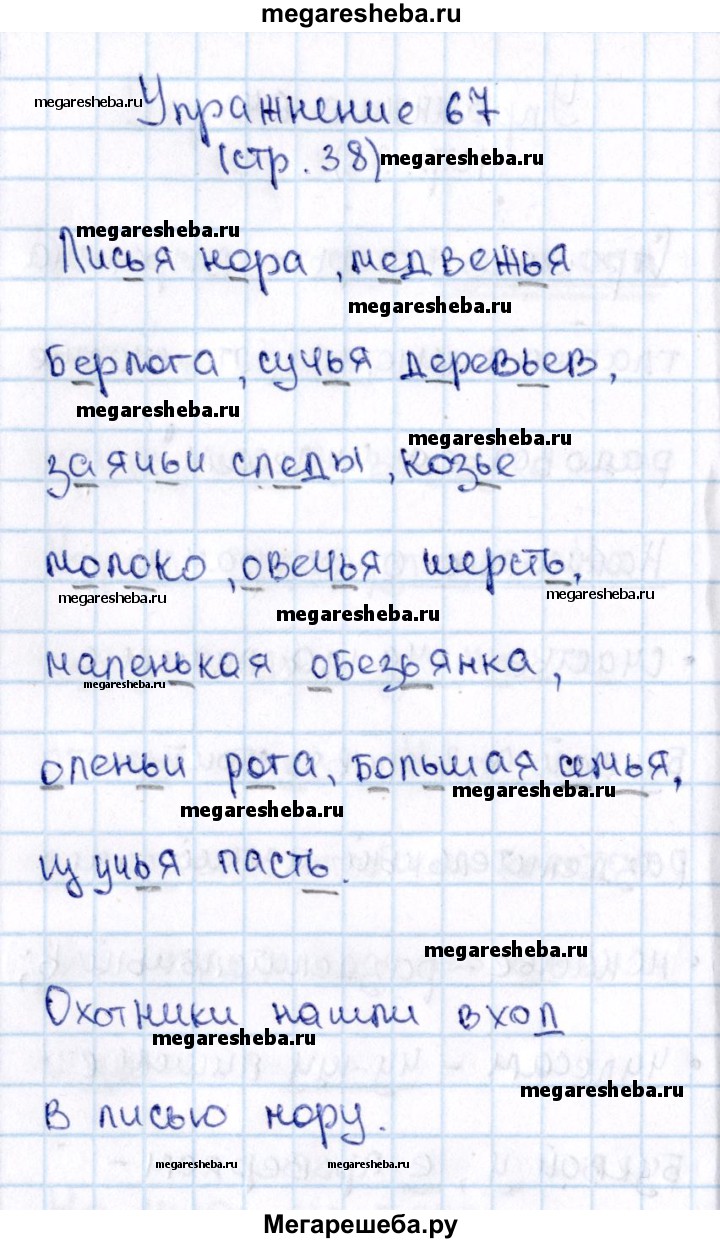 megaresheba.ru
megaresheba.ru
Упражнение 67
(стр. 38)
megaresheba.ru
megaresheba.ru
Лисья нора, медвежья
megaresheba.ru
берлога, сучья деревьев,
megaresheba.ru
megaresheba.ru
заячьи следы, козье
молоко, овечья шерсть,
megaresheba.ru
megaresheba.ru
megaresheba.ru
маленькая обезьянка,
megaresheba.ru
оленьи рога, большая семья,
megaresheba.ru
megaresheba.ru
щучья пасть.
megaresheba.ru
Охотники нашли вход
megaresheba.ru
megaresheba.ru
в лисью нору.
megaresheba.ru
megaresheba.ru
Мегарешеба.ру